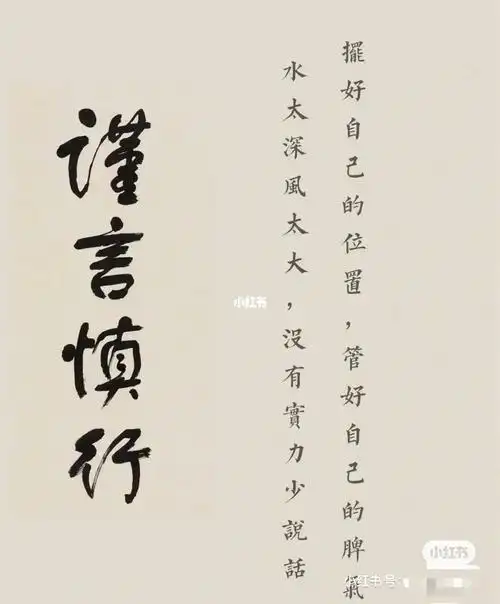 擺好自己的位置，管好自己的脾氣
水太深風太大，沒有實力少說話
謹言慎行
小红书
小红书
小红书号: